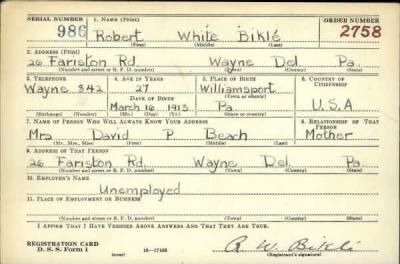 SERIAL NUMBER 1. NAME (Print) ORDER NUMBER
986 Robert White Biklé 2758
(First) (Middle) (Last)
2. ADDRESS (Print)
26 Fariston Rd. Wayne Del. Pa.
(Number and street or R. F. D. number) (Town) (County) (State)
3. TELEPHONE 4. AGE IN YEARS 5. PLACE OF BIRTH 6. COUNTRY OF CITIZENSHIP
Wayne 842 27 Williamsport
DATE OF BIRTH (Town or county)
March 16 1913 Pa. U.S.A
(Exchange) (Number) (Mo.) (Day) (Yr.) (State or country)
7. NAME OF PERSON WHO WILL ALWAYS KNOW YOUR ADDRESS 8. RELATIONSHIP OF THAT PERSON
Mrs David P. Beach Mother
(Mr., Mrs., Miss) (First) (Middle) (Last)
9. ADDRESS OF THAT PERSON
26 Fariston Rd. Wayne Del. Pa.
(Number and street or R. F. D. number) (Town) (County) (State)
10. EMPLOYER'S NAME
Unemployed
11. PLACE OF EMPLOYMENT OR BUSINESS
(Number and street or R. F. D. number) (Town) (County) (State)
I AFFIRM THAT I HAVE VERIFIED ABOVE ANSWERS AND THAT THEY ARE TRUE.
REGISTRATION CARD R. W. Biklé
D. S. S. Form 1 (over) 16—17105 (Registrant's signature)